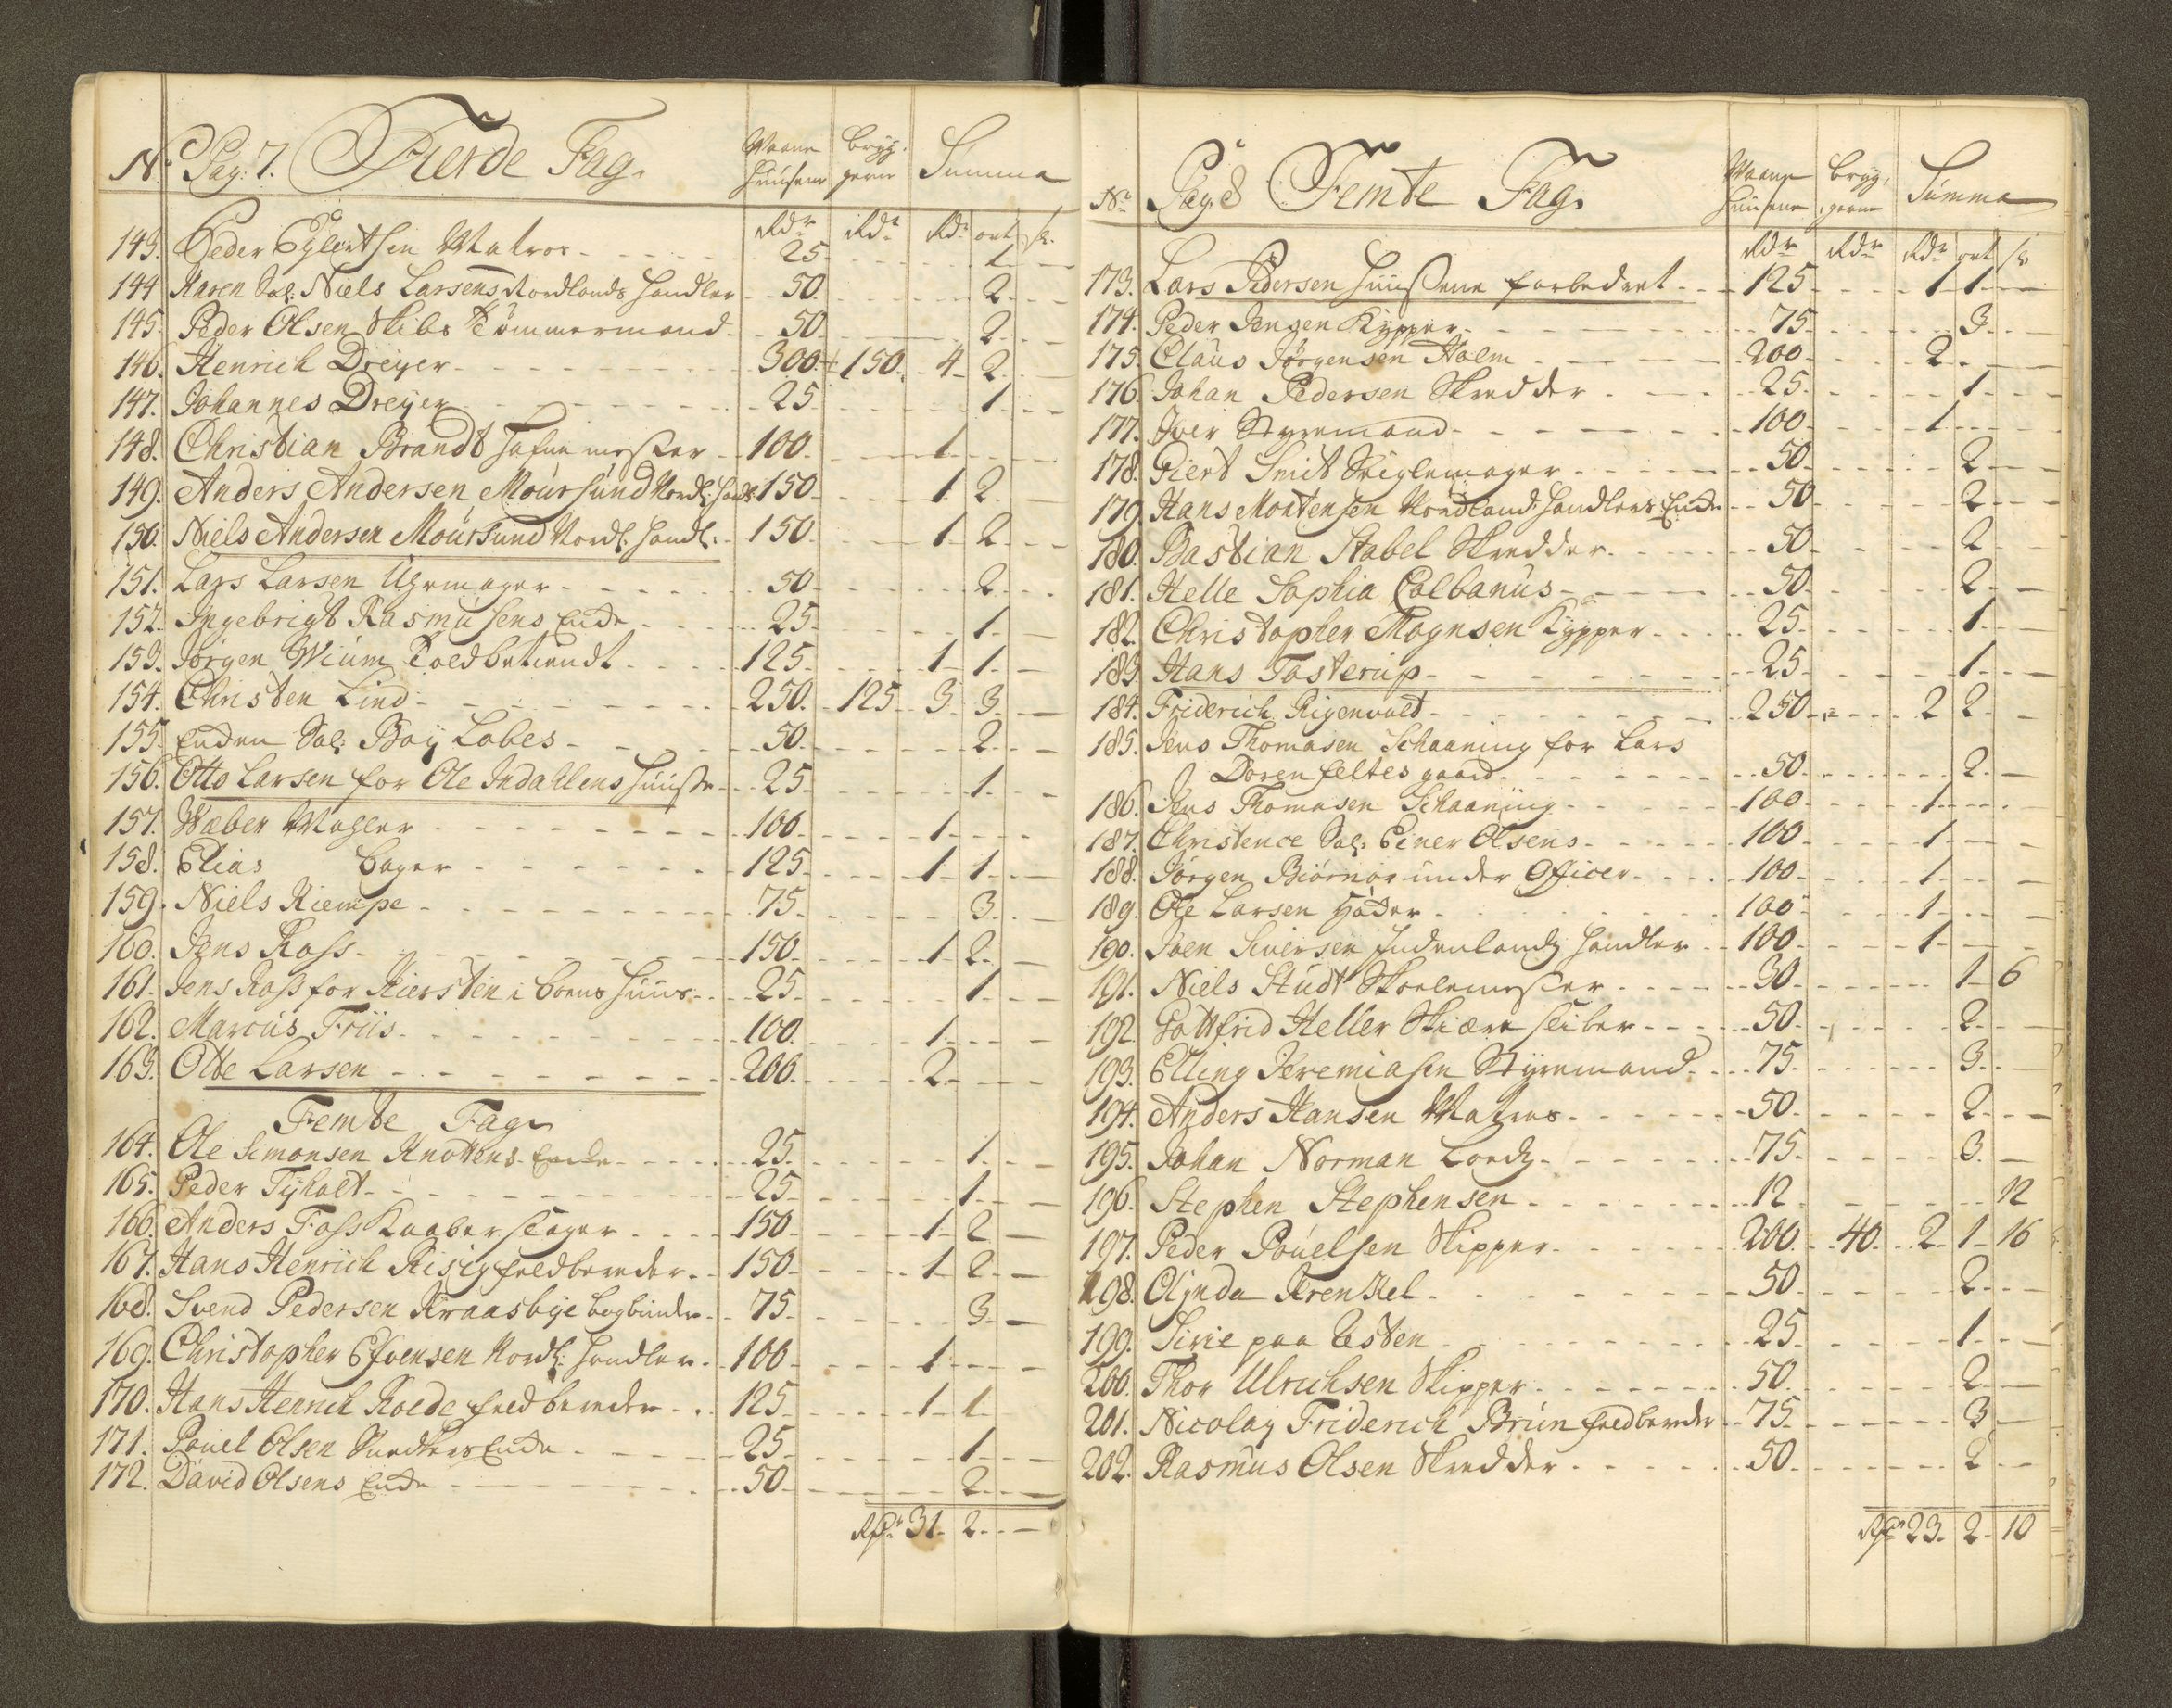 No Pag: 7. Fierde Fag. Waane Huusene Bryg. gerne Summa
Rdr Rdr Rdr ort s.
143. Peder Eylertsen Matros 25 1
144 Karen Sal: Niels Larsens Nordlands Handler 50 2
145. Peder Olsen Skibs Tömmermand 50 2
146. Henrich Dreyer 300 + 150 4 2
147. Johannes Dreyer 25 1
148. Christian Brandt Hafnemester 100 1
149. Anders Andersen Moursund Nordl: Handl. 150 1 2
150. Niels Andersen Moursund Nordl: Handl: 150 1 2
151. Lars Larsen Uhrmager 50 2
152. Ingebrigt Rasmusens Encke 25 1
153. Jörgen Wium Toldbetiendt 125 1 1
154. Christen Lind 250 125 3 3
155. Encken Sal: Boy Lobes 50 2
156. Otto Larsen for Ole Indahlens Huuse 25 1
157. Wæber Mahler 100 1
158. Elias Bager 125 1 1
159. Niels Kiempe 75 3
160. Jens Ross 150 1 2
161. Jens Ross for Kiersten i Boens Huus 25 1
162. Marcus Friis 100 1
163. Otte Larsen 200 2
Femte Fag
164. Ole Simonsen Knottens Encke 25 1
165. Peder Tyholt 25 1
166. Anders Foss Kaaberslager 150 1 2
167. Hans Henrich Risig feldbereder 150 1 2
168. Svend Pedersen Kraasbye bogbinder 75 3
169. Christopher Evensen Nordl: Handler 100 1
170. Hans Henrich Roede feldbereder 125 1 1
171. Pouel Olsen Snedkers Encke 25 1
172. David Olsens Encke 50 2
Rdr 31 2
No Pag. 8 Femte Fag. Waane Huusene Bryg, gerne Summa
Rdr Rdr Rdr ort s
173. Lars Pedersen Huusene forbedret 125 1 1
174. Peder Jensen Kypper 75 3
175. Claus Jörgensen Holm 200 2
176. Johan Pedersen Skredder 25 1
177. Iver Styremand 100 1
178. Giert Smit Seiglemager 50 2
179. Hans Mortensen Nordland: Handlers Encke 50 2
180. Bastian Stabel Skredder 50 2
181. Helle Sophia Colbanus 50 2
182. Christopher Mognsen Kypper 25 1
183. Hans Fosterup 25 1
184. Friderich Rigenvold 250 2 2
185. Jens Thomasen Schaaning for Lars
Dorenfeltes gaard 50 2
186. Jens Thomasen Schaaning 100 1
187. Christence Sal: Einer Olsens 100 1
188. Jörgen Biörnor under Officer 100 1
189. Ole Larsen Höder 100 1
190. Sven Siversen Indenlands Handler 100 1
191. Niels Studt Skolemester 30 1 6
192. Gottfrid Heller Skiære sliber 50 2
193. Elling Jeremiasen Styremand 75 3
194. Anders Hansen Matros 50 2
195. Johan Norman Lods 75 3
196. Stephen Stephensen 12 12
197. Peder Pouelsen Skipper 200 40 2 1 16
198. Olynda Krenkel 50 2
199. Sirie paa Esten 25 1
200. Thor Ulrichsen Skipper 50 2
201. Nicolay Friderich Brun feldbereder 75 3
202. Rasmus Olsen Skredder 50 2
Rdr 23 2 10